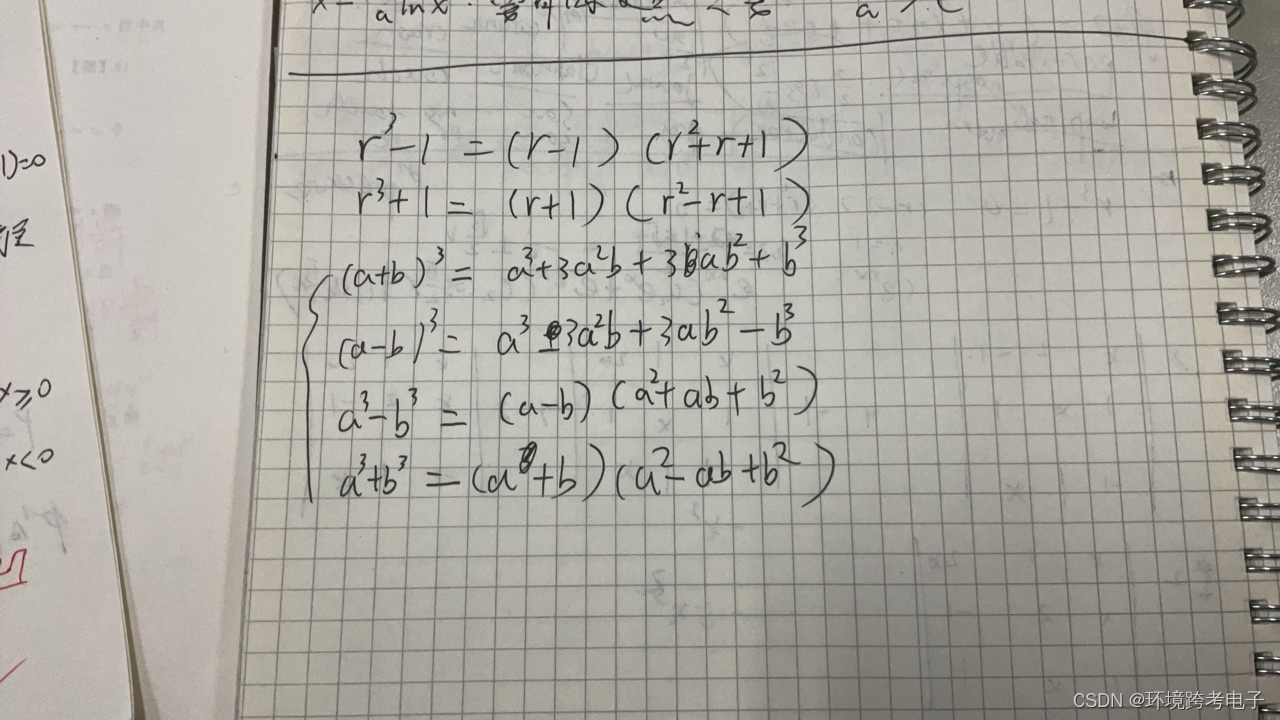 r³-1 = (r-1) (r²+r+1)
r³+1 = (r+1) (r²-r+1)
(a+b)³ = a³+3a²b+3ab²+b³
(a-b)³ = a³-3a²b+3ab²-b³
a³-b³ = (a-b) (a²+ab+b²)
a³+b³ = (a+b)(a²-ab+b²)
1)=0
x≥0
x<0
CSDN @环境跨考电子